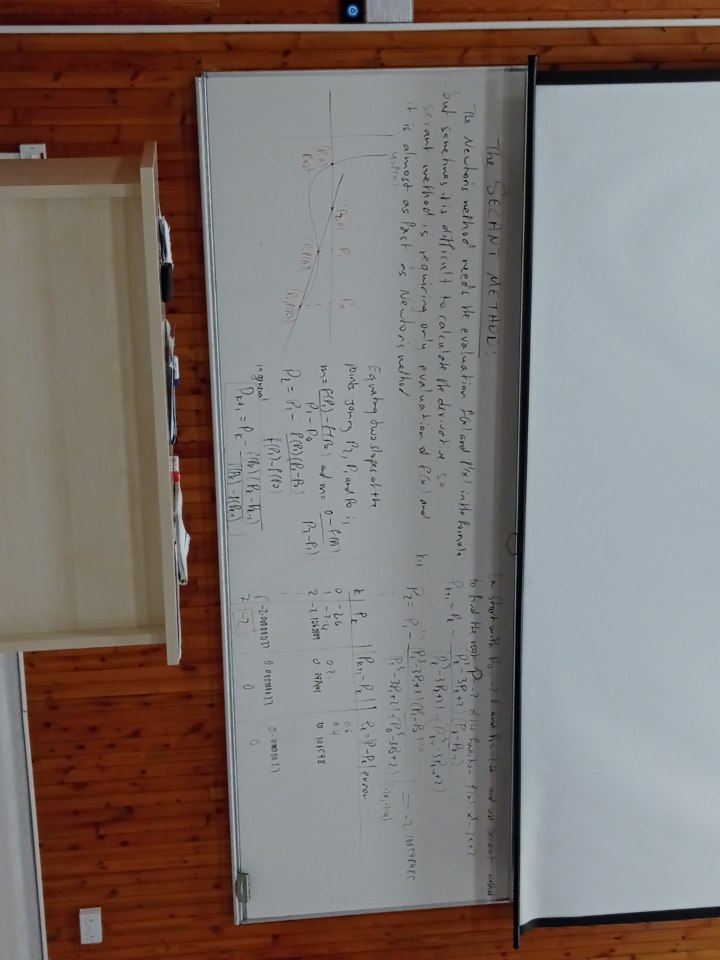 The SECANT METHOD:
The Newton's method needs the evaluation f(x) and f'(x) in the formula
but sometimes it is difficult to calculate the derivative so
secant method is requiring only evaluation of f(x) and
it is almost as fast as Newton's method
y=f(x)
(P2,0) P1 P0
(P1,f(P1))
(P0,f(P0))
Equating two slopes of the
points joining P2, P1 and P0 is
m = f(P1)-f(P0) / P1-P0 and m = 0-f(P1) / P2-P1
P2 = P1 - f(P1)(P1-P0) / f(P1)-f(P0)
in general
Pk+1 = Pk - f(Pk)(Pk-Pk-1) / f(Pk)-f(Pk-1)
Ex Start with P0=-2.6 and P1=-2.4 and use secant method
to find the root P=-2 of the function f(x)=x³-3x+2
Pk+1 = Pk - (Pk³-3Pk+2)(Pk-Pk-1) / Pk³-3Pk+2)-(Pk-1³-3Pk-1+2)
k=1
P2 = P1 - (P1³-3P1+2)(P1-P0) / (P1³-3P1+2)-(P0³-3P0+2) = -2.106598985
k Pk |Pk+1-Pk| Ek=|P-Pk| error
0 -2.6 0.6
1 -2.4 0.2 0.4
2 0.106598
6 -2.00000027 0.00000027 0.00000027
7 -2 0 0